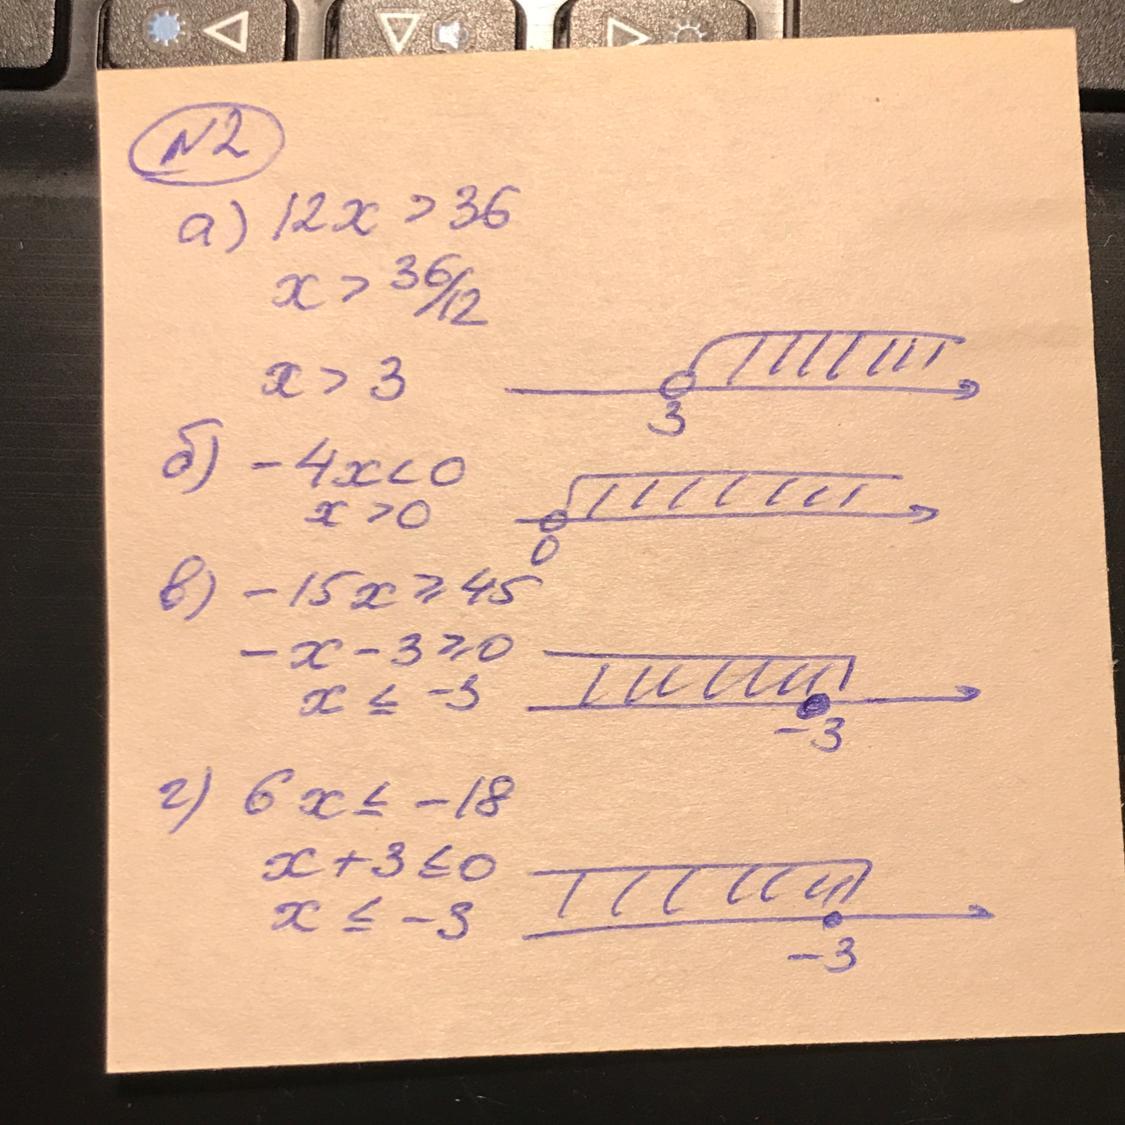 N2
а) 12x > 36
x > 36/12
x > 3
3
б) -4x < 0
x > 0
0
в) -15x ⩾ 45
-x - 3 ⩾ 0
x ≤ -3
-3
г) 6x ≤ -18
x + 3 ≤ 0
x ≤ -3
-3